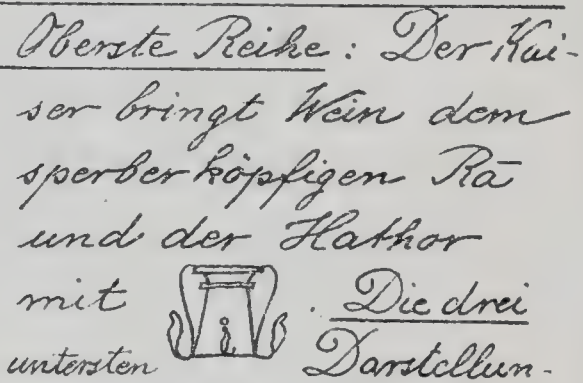 Oberste Reihe : Der Kai-
ser bringt Wein dem
sperberköpfigen Rā
und der Hathor
mit . Die drei
untersten Darstellun-